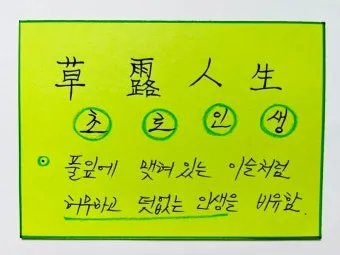 草露人生
초로인생
풀잎에 맺혀있는 이슬처럼
허무하고 덧없는 인생을 비유함.